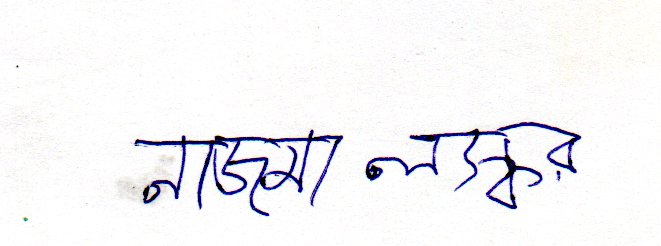 নাজমা লস্কর